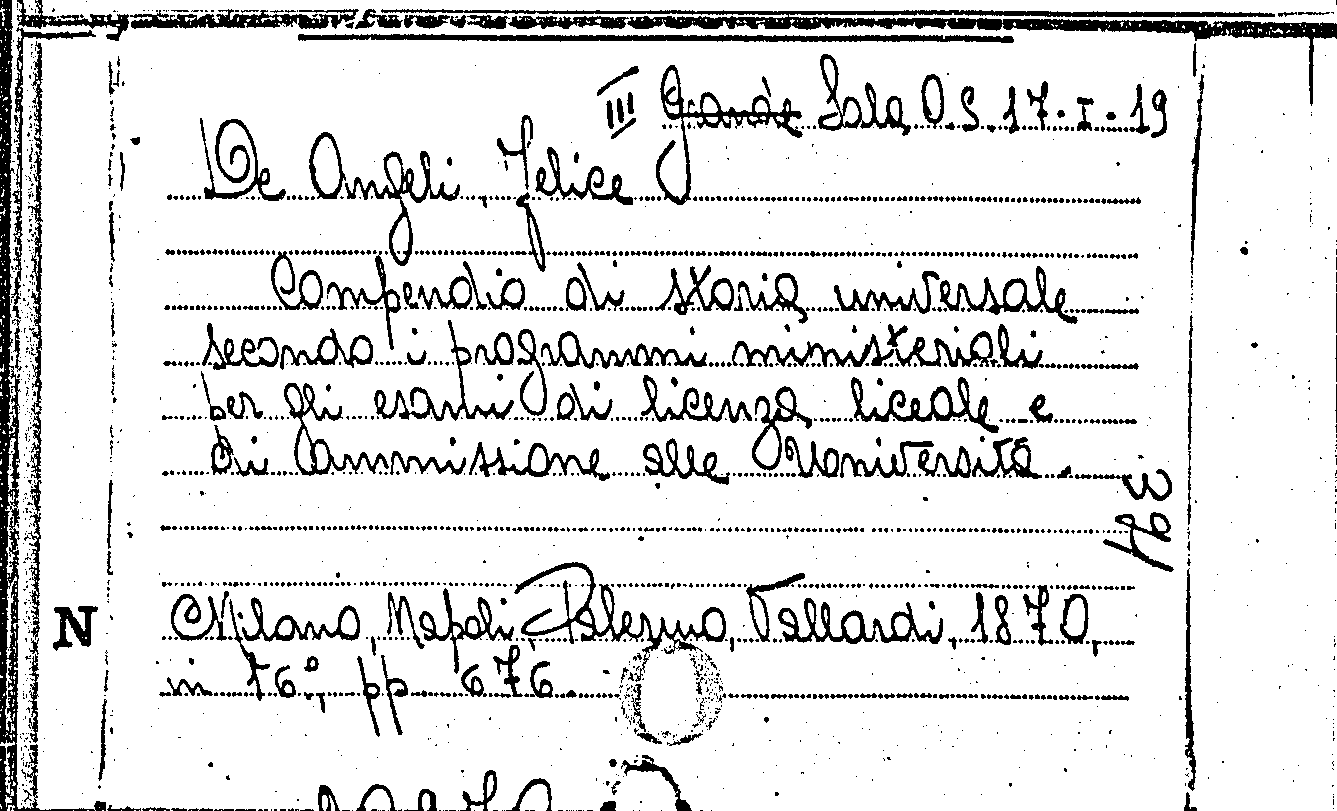 III Grande Sala O.S. 17.I.19
De Angeli, Felice
Compendio di storia universale
secondo i programmi ministeriali
per gli esami di licenza liceale e
di ammissione alle Università.
394
Milano, Napoli, Palermo, Vallardi, 1870,
N
in 16º, pp. 676.